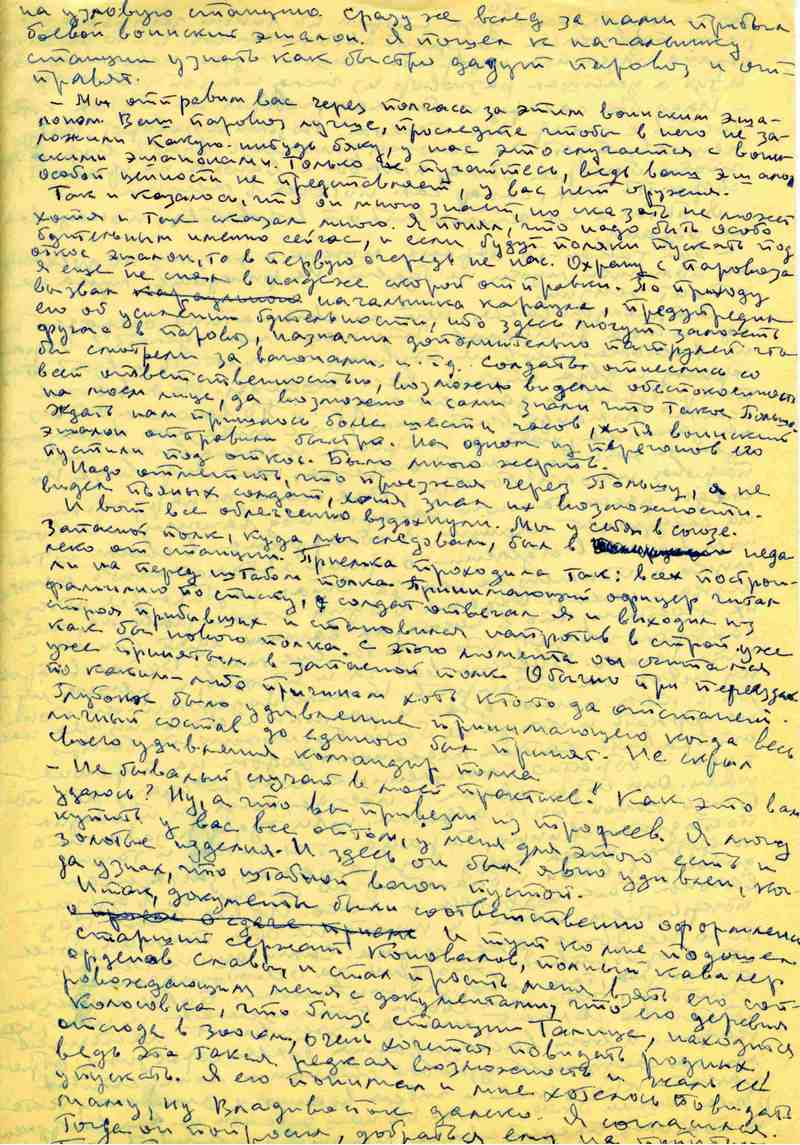 на узловую станцию. Сразу же вслед за нами прибыл
боевой воинский эшалон. Я пошел к начальнику
станции узнать как быстро дадут паровоз и от-
правят.
– Мы отправим вас через полчаса за этим воинским эша-
лоном. Ваш паровоз лучше, проследите чтобы в него не за-
ложили какую-нибудь бяку, у нас это случается с воин-
скими эшалонами. Только не пугайтесь, ведь ваш эшалон
особой ценности не представляет, у вас нет оружия.
Так и казалось, что он много знает, но сказать не может
хотя и так сказал много. Я понял, что надо быть особо
бдительным именно сейчас, и если будут поляки пускать под
откос эшалон, то в первую очередь не нас. Охрану с паровоза
я еще не снял в надежде скорой отправки. По приходу
вызвал начальника караула, предупредил
его об усилении бдительности, ибо здесь могут заложить
другое в паровоз, назначил дополнительно патрулей что
бы смотрели за вагонами. и. т.д. Солдаты отнеслись со
всей ответственностью, возможно видели обеспокоенность
на моем лице, да возможно и сами знали что такое Польша.
Ждать нам пришлось более шести часов, хотя воинский
эшалон отправили быстра. На одном из перегонов его
пустили под откос. Было много жертв.
Надо отметить, что проезжая через Польшу, я не
видел пьяных солдат, хотя знал их возможности.
И вот все облегченно вздохнули. Мы у себя в союзе.
Запасной полк, куда мы следовали, был в неда
леко от станции. Приемка проходила так: всех построи-
ли на перед штабом полка. Принимающий офицер читал
фамилию по списку, солдат отвечал я и выходил из
строя прибывших и становился напротив в строй уже
как бы нового полка. С этого момента он считался
уже принятым в запасной полк. Обычно при переездах
по каким-либо причинам хоть кто-то да отстанет.
Глубокое было удивление принимающего когда весь
личный состав до единого был принят. Не скрыл
своего удивления командир полка
– Не бывалый случай в моей практике! Как это вам
удалось? Ну, а что вы привезли из трофеев. Я могу
купить у вас все оптом, у меня для этого есть и
золотые изделия. И здесь он был явно удивлен, ког
да узнал, что штабной вагон пустой.
Итак, документы были соответственно оформлены
И тут ко мне подошел
старший сержант Коновалов, полный кавалер
орденов славы, и стал просить меня взять его соп-
ровождающим меня с документами, что его деревня
Колосовка, что близ станции Талица, находится
отсюда в 300 км, очень хочется повидать родных,
ведь эта такая редкая возможность и жаль её
упускать. Я его понимал и мне хотелось повидать
маму, ну Владивосток далеко. Я согласился.
Тогда он попросил, добраться ему на